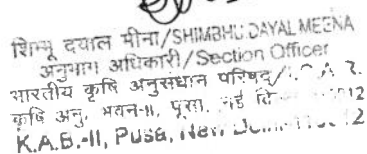 शिम्भू दयाल मीना/SHIMBHU DAYAL MEENA
अनुभाग अधिकारी/Section Officer
भारतीय कृषि अनुसंधान परिषद्/I.C.A.R.
कृषि अनु. भवन-II, पूसा, नई
K.A.B.-II, Pusa, New